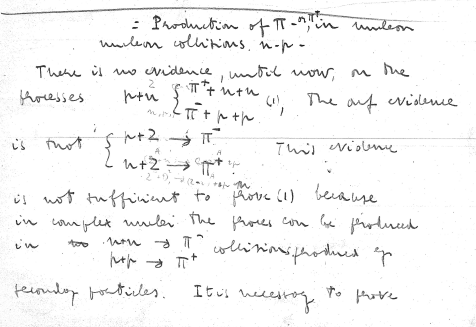 = Production of π⁻ or π⁺ in nucleon
nucleon collisions. n-p-
There is no evidence, until now, on the
processes p+n { π⁺+n+n
π⁻+p+p (1), The only evidence
is that { p+Z → π⁻
n+Z → π⁺. This evidence
is not sufficient to prove (1) because
in complex nuclei the process can be produced
in n+n → π⁻
p+p → π⁺ collisions produced by
secondary particles. It is necessary to prove